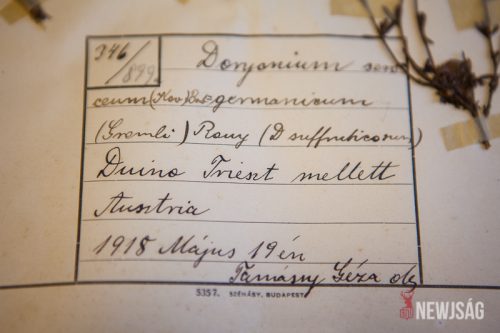 346/899.
Doryonium seri
ceum (Kov) Ssp germanicum
(Gremli) Rouy (D suffruticosum)
Duino Trieszt mellett
Ausztria
1918 Május 19én
Tamásy Géza
5357. SZÉNÁSY, BUDAPEST
NEWJSÁG